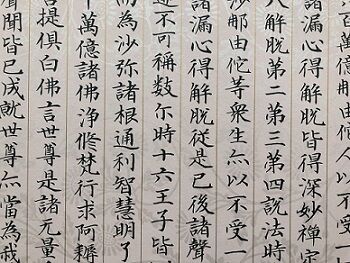 百万億那由佗人以不受一
諸漏心得解脫皆得深妙禪定
八解脫第二第三第四說法時
沙那由佗等衆生亦以不受一
諸漏心得解脫從是已後諸聲
邊不可稱数尔時十六王子皆
而為沙弥諸根通利智慧明了
千萬億諸佛淨修梵行求阿耨
菩提俱白佛言世尊是諸无量
聲聞皆已成就世尊亦當為我